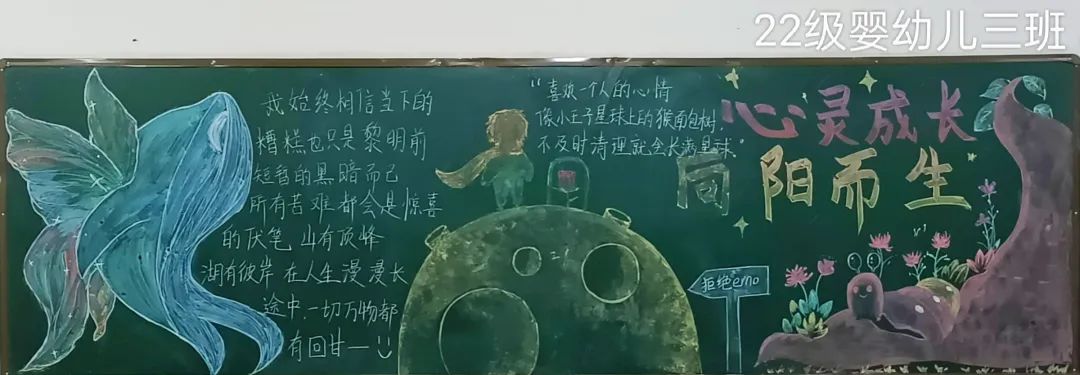 22级婴幼儿三班
我始终相信当下的
糟糕也只是黎明前
短暂的黑暗而已
所有苦难都会是惊喜
的伏笔 山有顶峰
湖有彼岸 在人生漫漫长
途中,一切万物都
有回甘一
“喜欢一个人的心情
像小王子星球上的猴面包树,
不及时清理就会长满星球”
心灵成长
向阳而生
拒绝emo